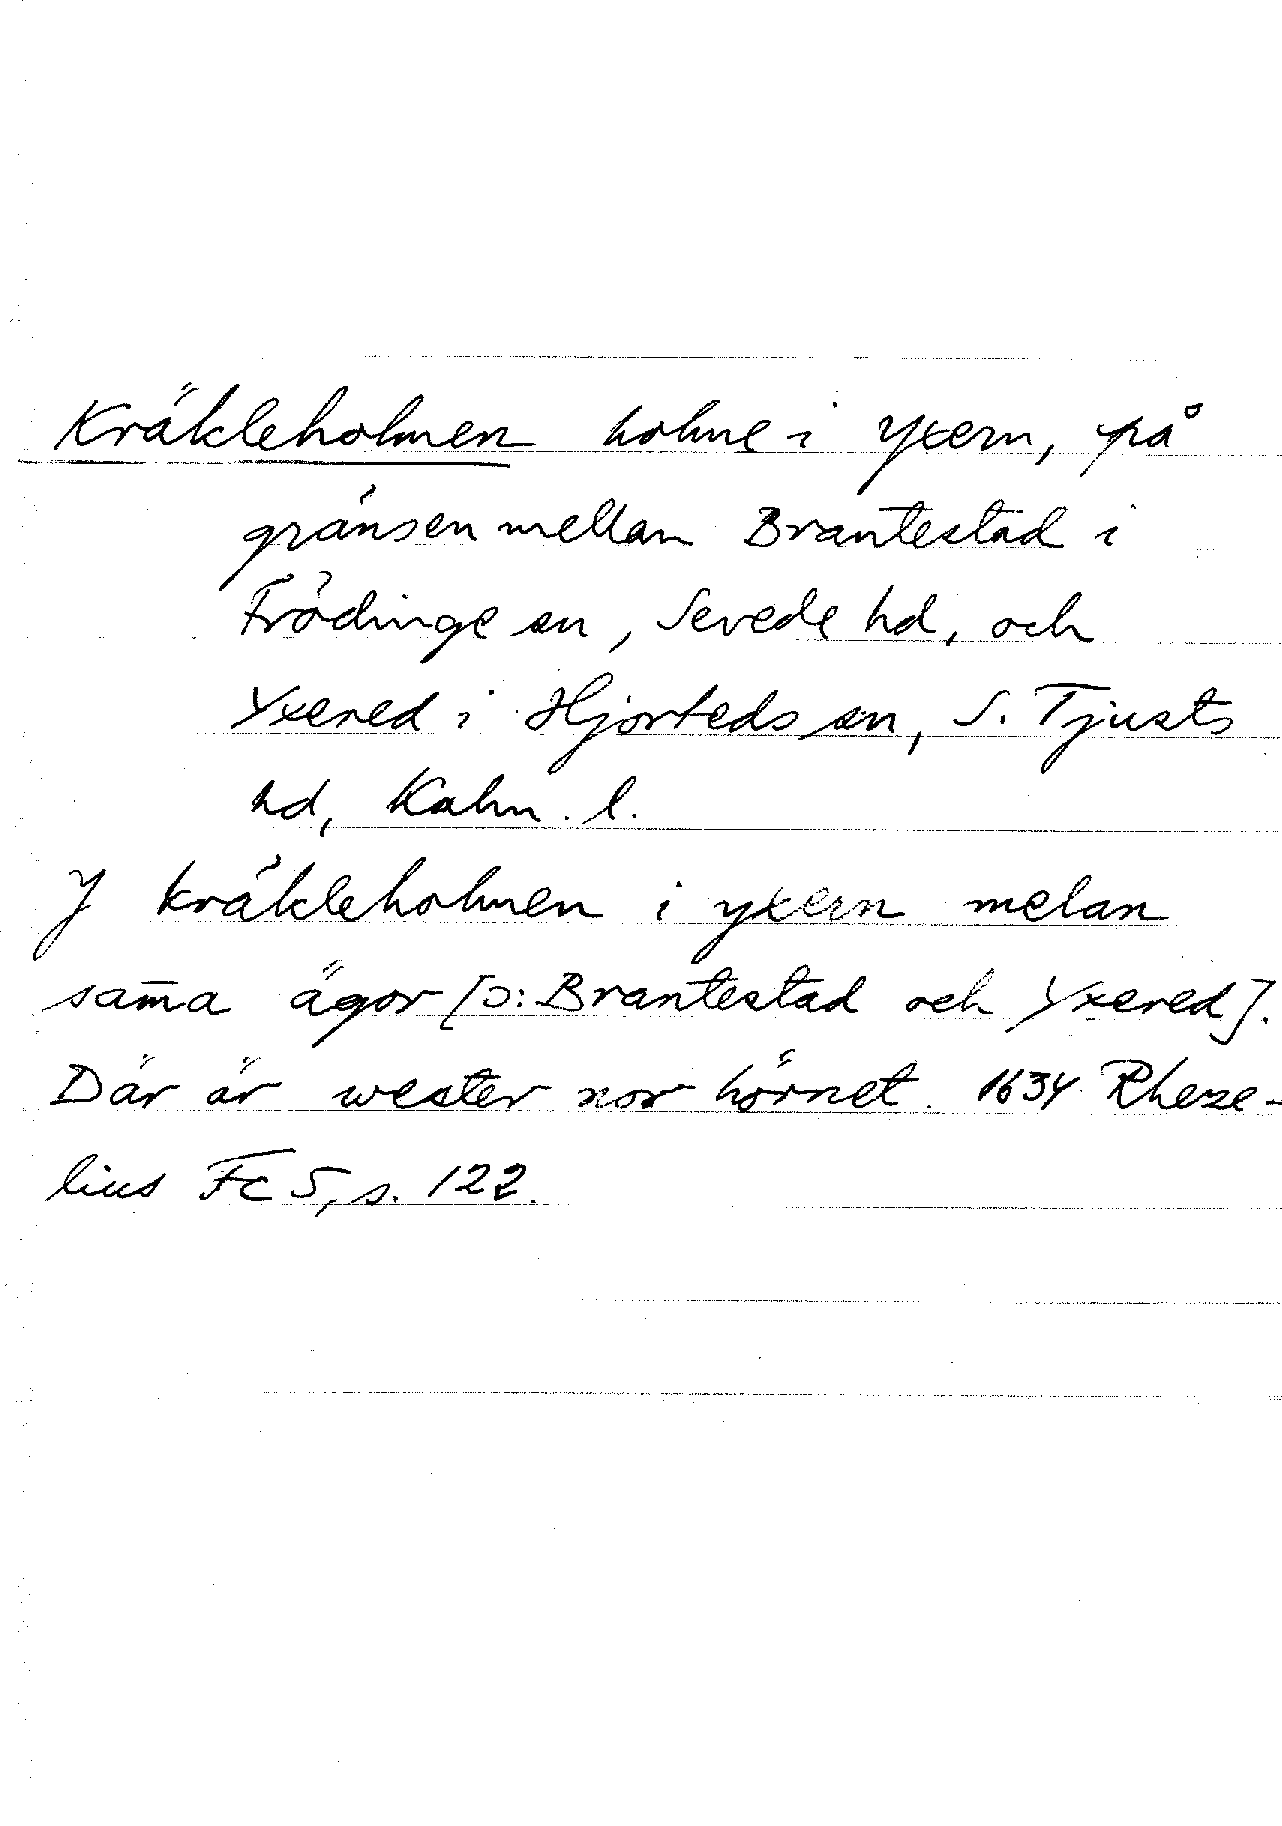 Kräkleholmen holme i Yxern, på
gränsen mellan Brantestad i
Frödinge sn, Sevede hd, och
Yxered i Hjorteds sn, S. Tjusts
hd, Kalm. l.
J kräkleholmen i yxern melan
sam̄a ägor [ɔ: Brantestad och Yxered].
Där är wester nor hörnet. 1634 Rheze-
lius Fc 5, s. 122.